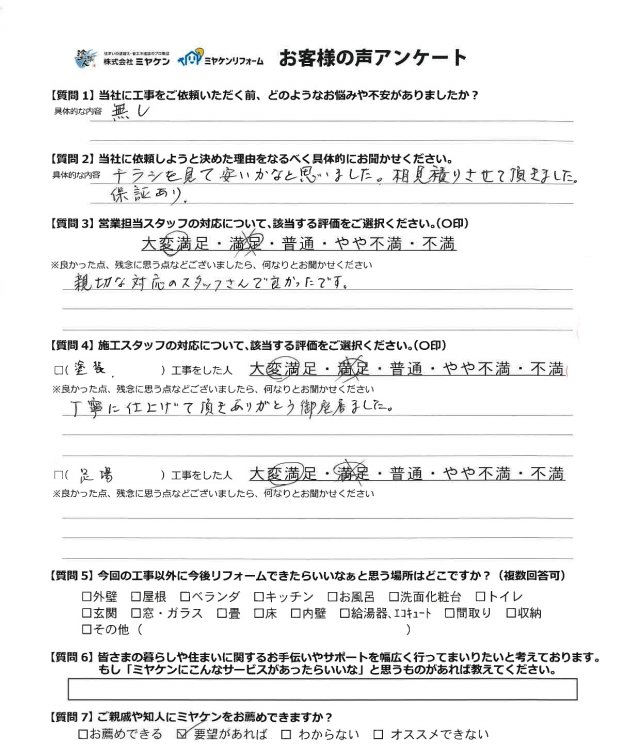 住まいの塗替え・省エネ改装のプロ集団
株式会社 ミヤケン ミヤケンリフォーム お客様の声アンケート
【質問１】当社に工事をご依頼いただく前、どのようなお悩みや不安がありましたか？
具体的な内容 無し
【質問２】当社に依頼しようと決めた理由をなるべく具体的にお聞かせください。
具体的な内容 チラシを見て安いかなと思いました。相見積りさせて頂きました。
保証あり.
【質問３】営業担当スタッフの対応について、該当する評価をご選択ください。（〇印）
大変満足・満足・普通・やや不満・不満
※良かった点、残念に思う点などございましたら、何なりとお聞かせください
親切な対応のスタッフさんで良かったです。
【質問４】施工スタッフの対応について、該当する評価をご選択ください。（〇印）
□( 塗装. ）工事をした人 大変満足・満足・普通・やや不満・不満
※良かった点、残念に思う点などございましたら、何なりとお聞かせください
丁寧に仕上げて頂きありがとう御座居ました。
□( 足場 ）工事をした人 大変満足・満足・普通・やや不満・不満
※良かった点、残念に思う点などございましたら、何なりとお聞かせください
【質問５】今回の工事以外に今後リフォームできたらいいなぁと思う場所はどこですか？（複数回答可）
□外壁 □屋根 □ベランダ □キッチン □お風呂 □洗面化粧台 □トイレ
□玄関 □窓・ガラス □畳 □床 □内壁 □給湯器、エコキュート □間取り □収納
□その他（ ）
【質問６】皆さまの暮らしや住まいに関するお手伝いやサポートを幅広く行ってまいりたいと考えております。
もし「ミヤケンにこんなサービスがあったらいいな」と思うものがあれば教えてください。
【質問７】ご親戚や知人にミヤケンをお薦めできますか？
□お薦めできる ☑要望があれば □ わからない □ オススメできない